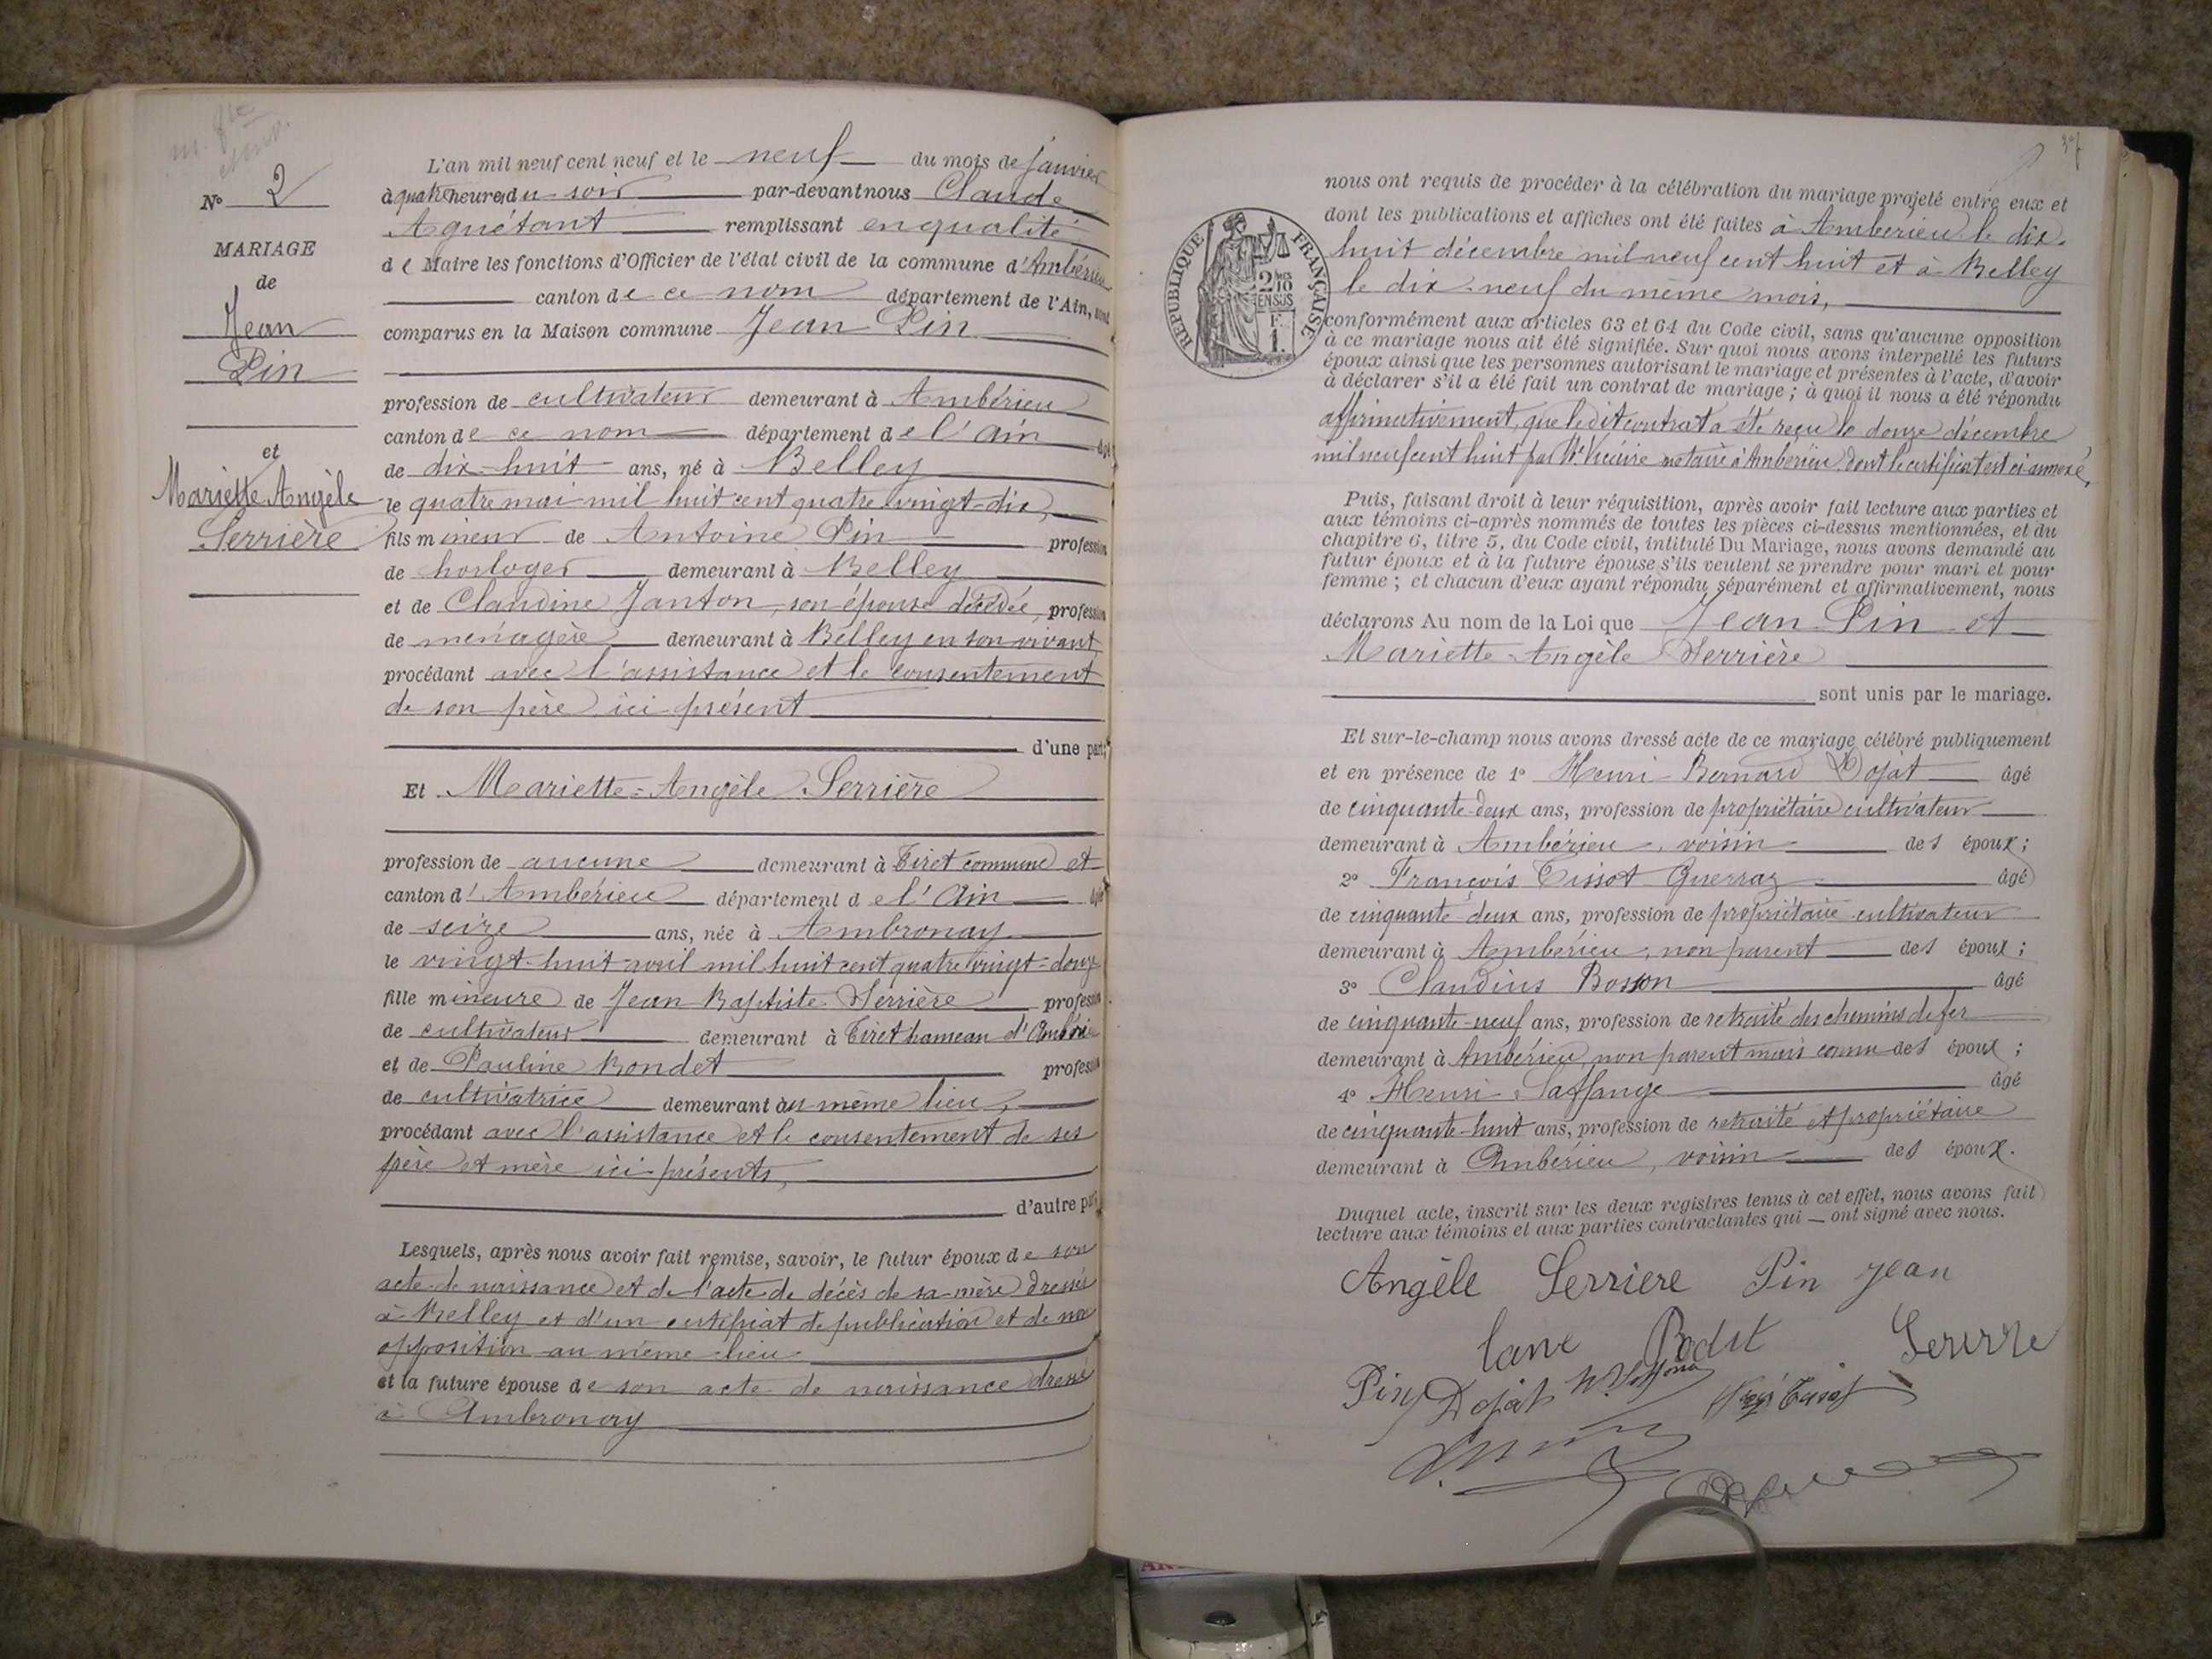 N° 2
MARIAGE
de
Jean
Pin
et
Mariette Angèle
Serrière
L'an mil neuf cent neuf et le neuf du mois de janvier
à quatre heures du soir par-devant nous Claude
Aguétant remplissant en qualité
de Maire les fonctions d'Officier de l'état civil de la commune d'Ambérieu
canton de ce nom département de l'Ain, sont
comparus en la Maison commune Jean Pin
profession de cultivateur demeurant à Ambérieu
canton de ce nom département de l'Ain âgé
de dix-huit ans, né à Belley
le quatre mai mil huit cent quatre vingt-dix,
fils mineur de Antoine Pin profession
de horloger demeurant à Belley
et de Claudine Janton, son épouse décédée, profession
de ménagère demeurant à Belley en son vivant,
procédant avec l'assistance et le consentement
de son père ici présent
d'une part;
Et Mariette-Angèle Serrière
profession de aucune demeurant à Tiret commune et
canton d'Ambérieu département de l'Ain âgée
de seize ans, née à Ambronay
le vingt-huit avril mil huit cent quatre vingt-douze
fille mineure de Jean Baptiste Serrière profession
de cultivateur demeurant à Tiret hameau d'Ambérieu
et de Pauline Bondet profession
de cultivatrice demeurant au même lieu,
procédant avec l'assistance et le consentement de ses
père et mère ici présents,
d'autre part;
Lesquels, après nous avoir fait remise, savoir, le futur époux de son
acte de naissance et de l'acte de décès de sa mère dressés
à Belley et d'un certificat de publication et de non
opposition au même lieu
et la future épouse de son acte de naissance dressé
à Ambronay
37
RÉPUBLIQUE FRANÇAISE
2/10
EN SUS
F.
1.
nous ont requis de procéder à la célébration du mariage projeté entre eux et
dont les publications et affiches ont été faites à Ambérieu le dix-
huit décembre mil neuf cent huit et à Belley
le dix-neuf du même mois,
conformément aux articles 63 et 64 du Code civil, sans qu'aucune opposition
à ce mariage nous ait été signifiée. Sur quoi nous avons interpellé les futurs
époux ainsi que les personnes autorisant le mariage et présentes à l'acte, d'avoir
à déclarer s'il a été fait un contrat de mariage ; à quoi il nous a été répondu
affirmativement, que ledit contrat a été reçu le douze décembre
mil neuf cent huit par Me notaire à Ambérieu, dont le certificat est ci-annexé,
Puis, faisant droit à leur réquisition, après avoir fait lecture aux parties et
aux témoins ci-après nommés de toutes les pièces ci-dessus mentionnées, et du
chapitre 6, titre 5, du Code civil, intitulé Du Mariage, nous avons demandé au
futur époux et à la future épouse s'ils veulent se prendre pour mari et pour
femme ; et chacun d'eux ayant répondu séparément et affirmativement, nous
déclarons Au nom de la Loi que Jean Pin et
Mariette-Angèle Serrière
sont unis par le mariage.
Et sur-le-champ nous avons dressé acte de ce mariage célébré publiquement
et en présence de 1° Henri-Bernard Dojat âgé
de cinquante-deux ans, profession de propriétaire cultivateur
demeurant à Ambérieu, voisin des époux;
2° François Tissot Guerraz âgé
de cinquante deux ans, profession de propriétaire cultivateur
demeurant à Ambérieu, non parent des époux ;
3° Claudius Bosson âgé
de cinquante-neuf ans, profession de retraité des chemins de fer
demeurant à Ambérieu, non parent mais connu des époux ;
4° Henri Saffange âgé
de cinquante-huit ans, profession de retraité et propriétaire
demeurant à Ambérieu, voisin des époux.
Duquel acte, inscrit sur les deux registres tenus à cet effet, nous avons fait
lecture aux témoins et aux parties contractantes qui — ont signé avec nous.
Angèle Serriere Pin Jean
Pin Dojat